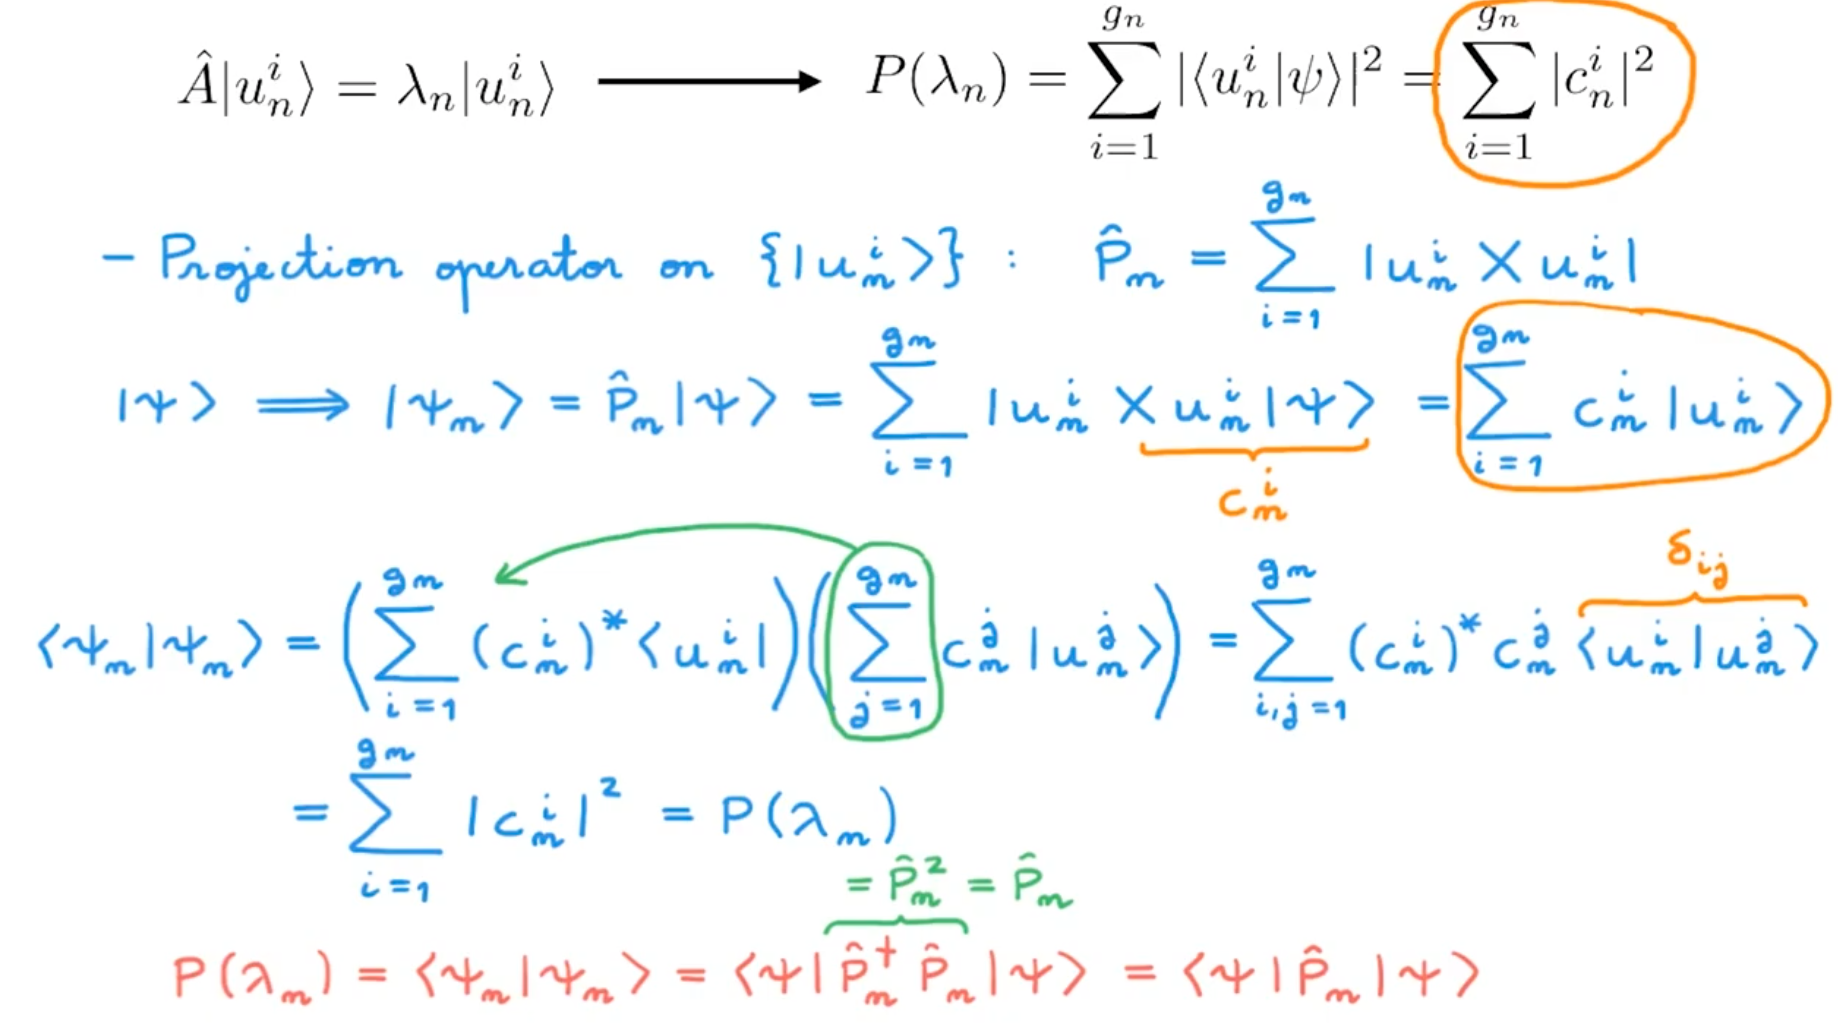 Â|uₙⁱ⟩ = λₙ|uₙⁱ⟩ ⟶ P(λₙ) = ∑_{i=1}^{gₙ} |⟨uₙⁱ|ψ⟩|² = ∑_{i=1}^{gₙ} |cₙⁱ|²
– Projection operator on {|uₙⁱ⟩} : P̂ₙ = ∑_{i=1}^{gₙ} |uₙⁱ⟩⟨uₙⁱ|
|ψ⟩ ⟹ |ψₙ⟩ = P̂ₙ|ψ⟩ = ∑_{i=1}^{gₙ} |uₙⁱ⟩⟨uₙⁱ|ψ⟩ = ∑_{i=1}^{gₙ} cₙⁱ |uₙⁱ⟩
cₙⁱ
δᵢⱼ
⟨ψₙ|ψₙ⟩ = (∑_{i=1}^{gₙ} (cₙⁱ)* ⟨uₙⁱ|)(∑_{j=1}^{gₙ} cₙʲ |uₙʲ⟩) = ∑_{i,j=1}^{gₙ} (cₙⁱ)* cₙʲ ⟨uₙⁱ|uₙʲ⟩
= ∑_{i=1}^{gₙ} |cₙⁱ|² = P(λₙ)
= P̂ₙ² = P̂ₙ
P(λₙ) = ⟨ψₙ|ψₙ⟩ = ⟨ψ|P̂ₙ† P̂ₙ|ψ⟩ = ⟨ψ|P̂ₙ|ψ⟩